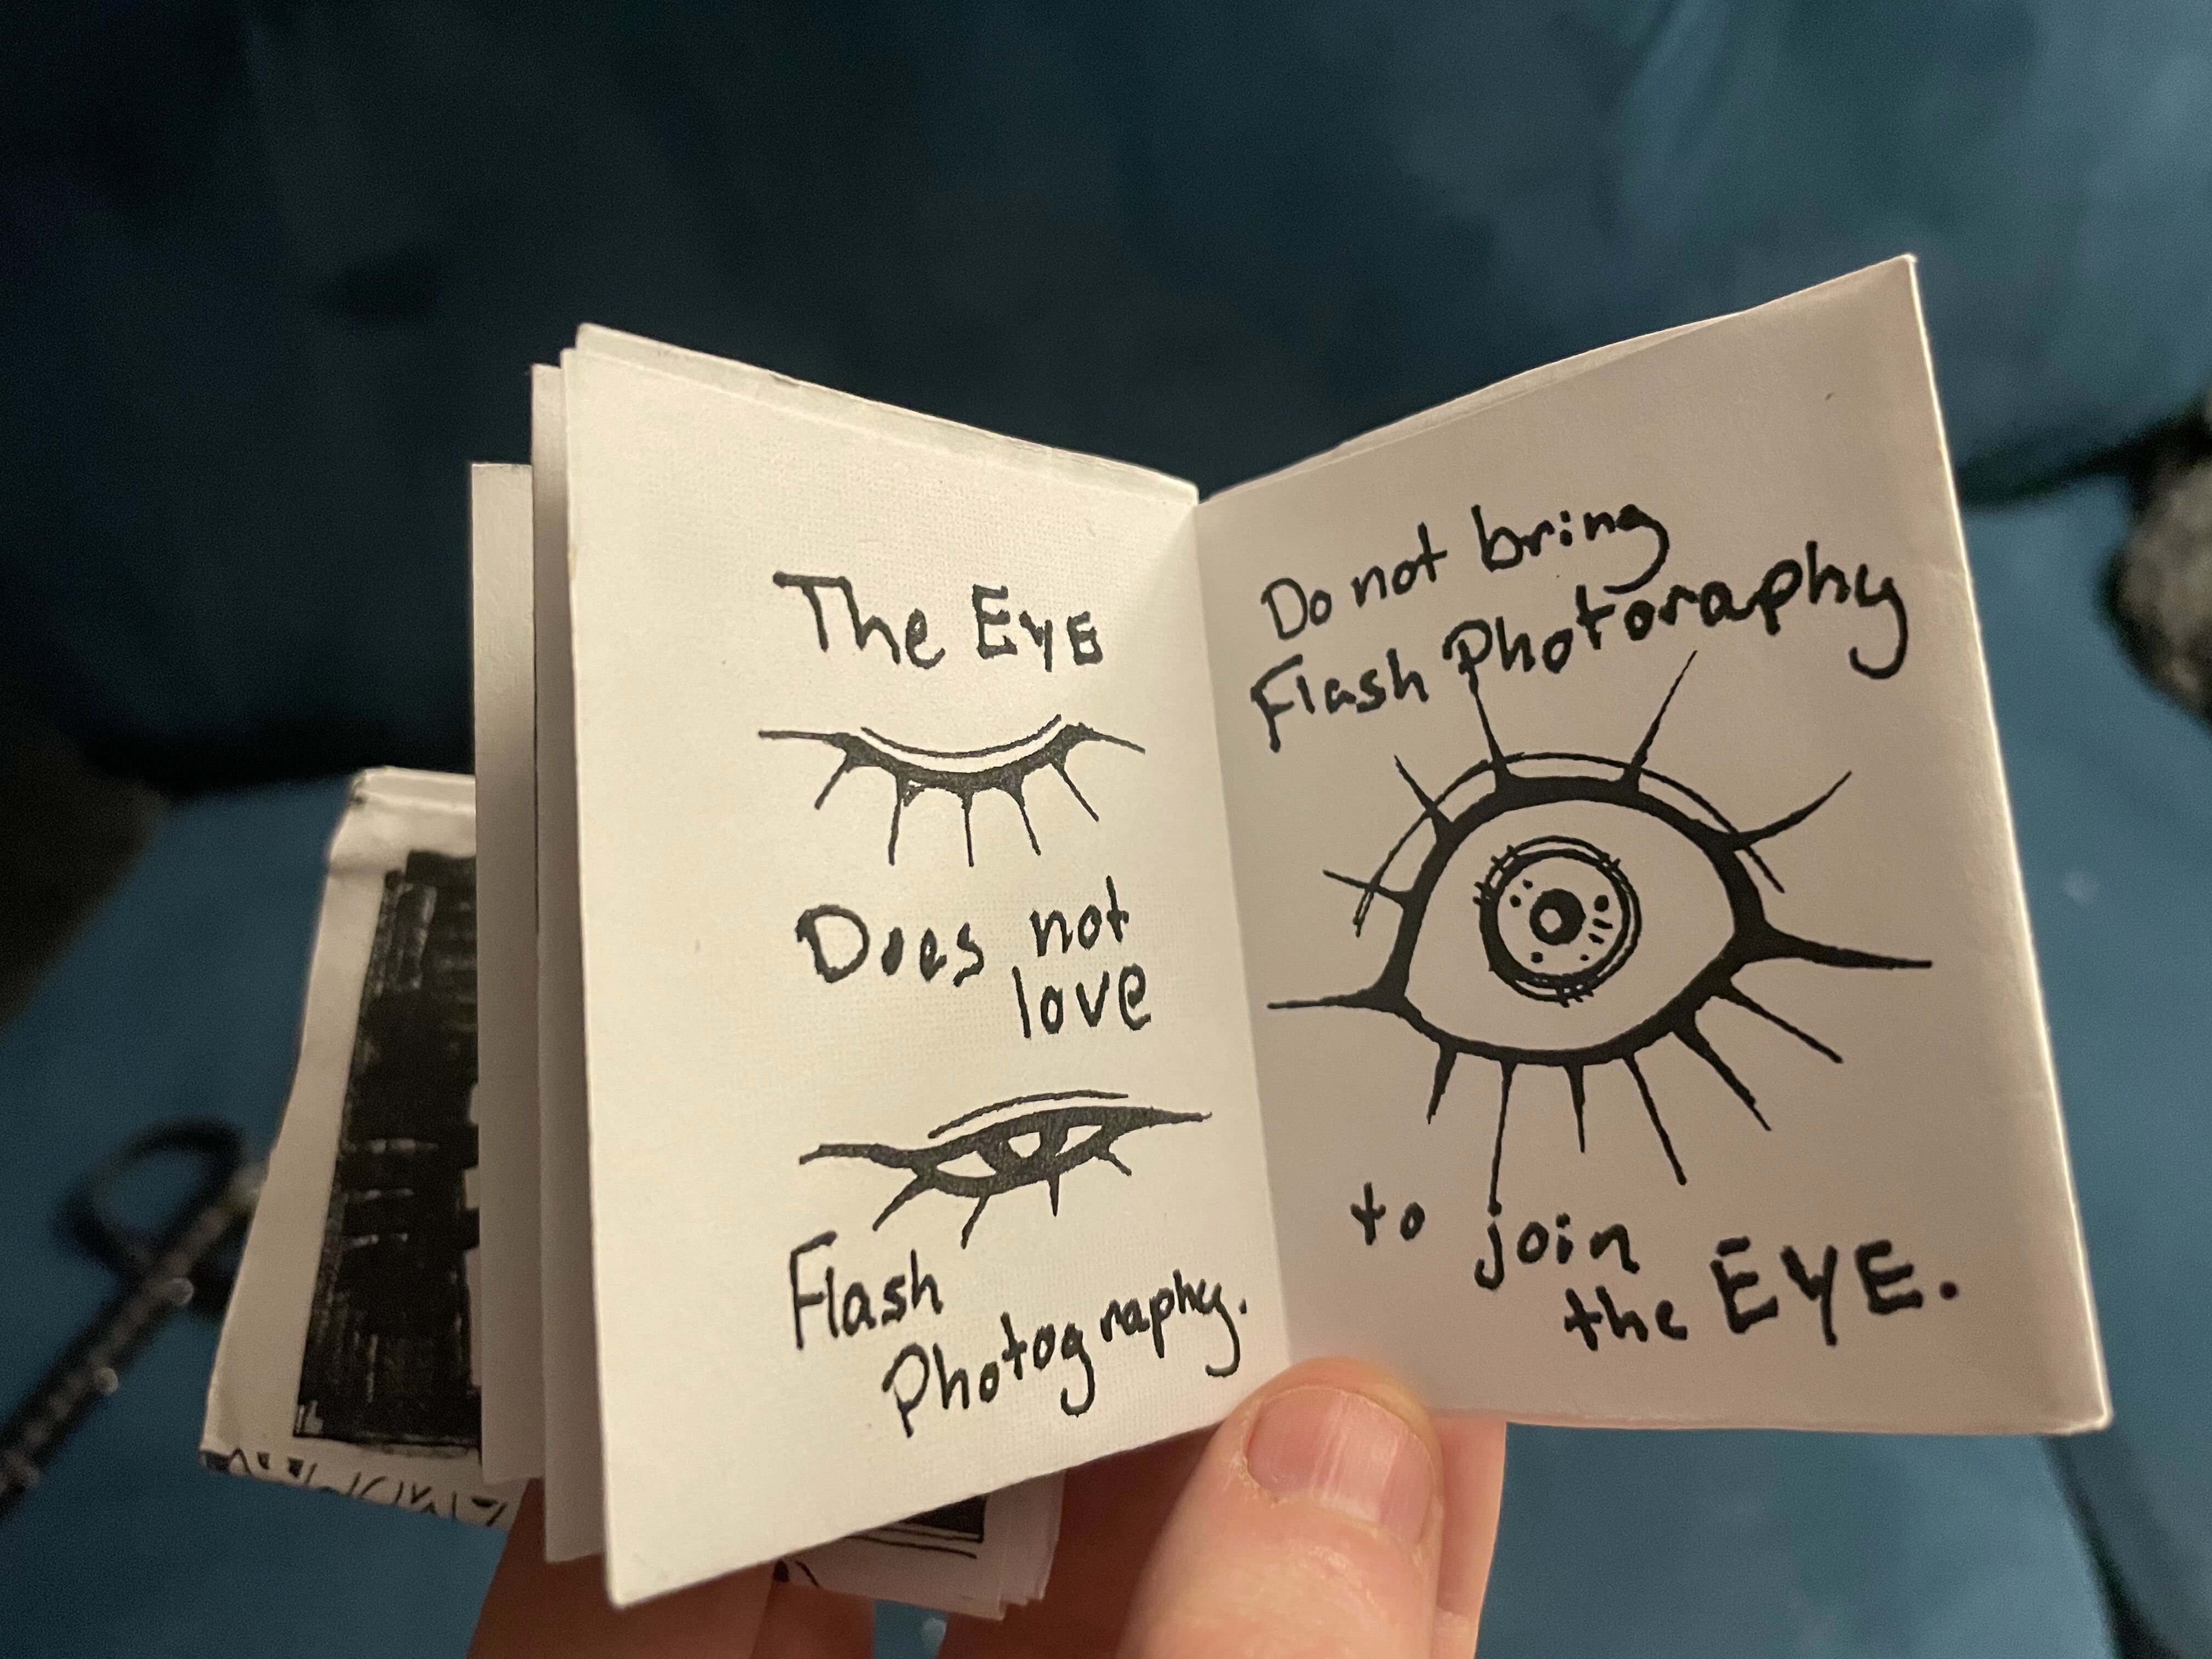 The EYE
Does not
love
Flash
Photography.
Do not bring
Flash Photoraphy
to join
the EYE.